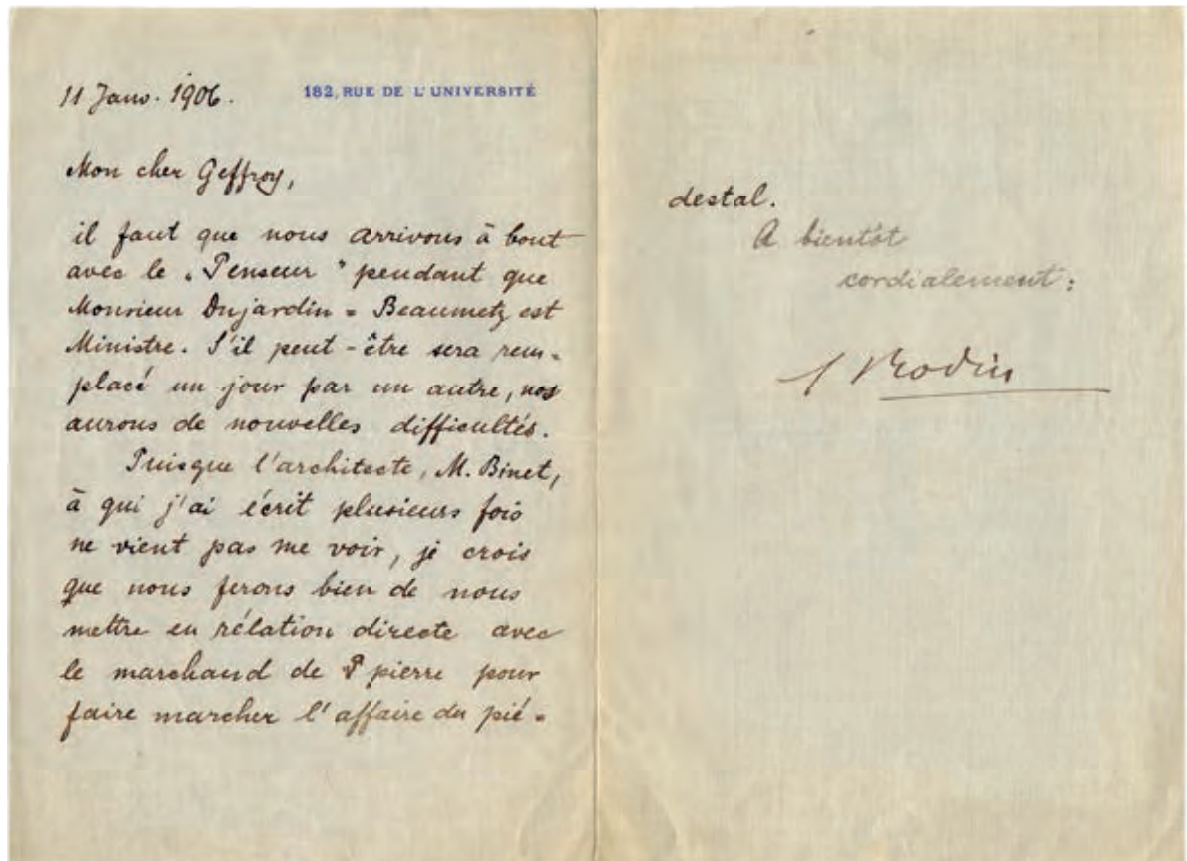 11 Janv. 1906.
182, RUE DE L'UNIVERSITÉ
Mon cher Geffroy,
il faut que nous arrivons à bout
avec le „Penseur" pendant que
Monsieur Dujardin = Beaumetz est
Ministre. S'il peut-être sera rem=
placé un jour par un autre, nos
aurons de nouvelles difficultés.
Puisque l'architecte, M. Binet,
à qui j'ai écrit plusieurs fois
ne vient pas me voir, je crois
que nous ferons bien de nous
mettre en rélation directe avec
le marchand de P pierre pour
faire marcher l'affaire du pié=
destal.
A bientôt
cordialement:
A Rodin